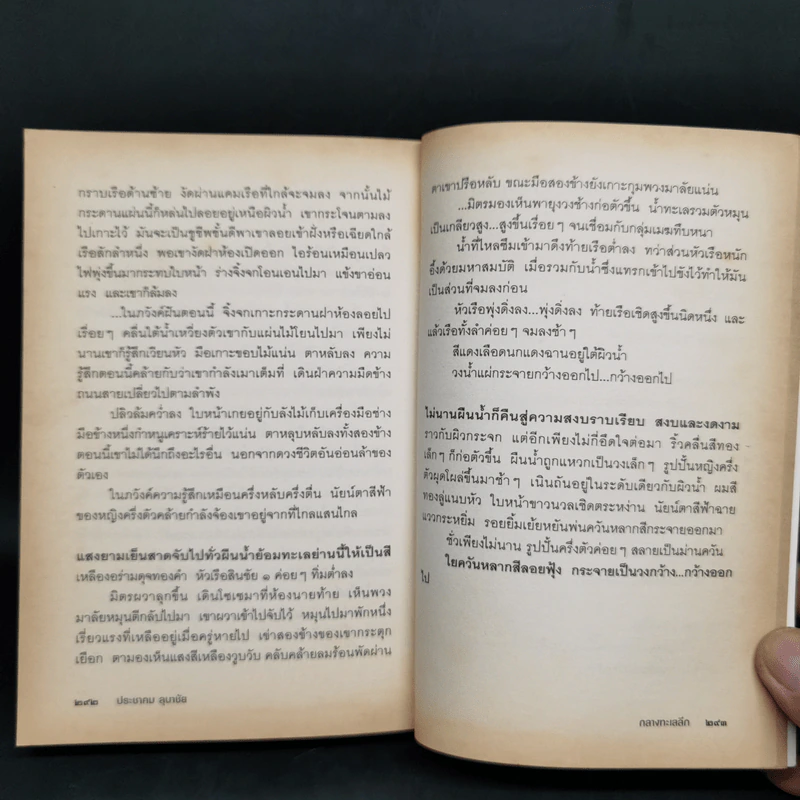 กราบเรือด้านซ้าย งัดผ่านแคมเรือที่ใกล้จะจมลง จากนั้นไม้
กระดานแผ่นนี้ก็หล่นไปลอยอยู่เหนือผิวน้ำ เขากระโจนตามลง
ไปเกาะไว้ มันจะเป็นชูชีพชั้นดีพาเขาลอยเข้าฝั่งหรือเฉียดใกล้
เรือสักลำหนึ่ง พอเขางัดฝาห้องเปิดออก ไอร้อนเหมือนเปลว
ไฟพุ่งขึ้นมากระทบใบหน้า ร่างจิ้งจกโอนเอนไปมา แข้งขาอ่อน
แรง และเขาก็ล้มลง
...ในภวังค์ฝันตอนนี้ จิ้งจกเกาะกระดานฝาห้องลอยไป
เรื่อยๆ คลื่นใต้น้ำเหวี่ยงตัวเขากับแผ่นไม้โยนไปมา เพียงไม่
นานเขาก็รู้สึกเวียนหัว มือเกาะขอบไม้แน่น ตาหลับลง ความ
รู้สึกตอนนี้คล้ายกับว่าเขากำลังเมาเต็มที่ เดินฝ่าความมืดข้าง
ถนนสายเปลี่ยวไปตามลำพัง
ปลิวล้มคว่ำลง ใบหน้าเกยอยู่กับลังไม้เก็บเครื่องมือช่าง
มือข้างหนึ่งกำหนูเคราะห์ร้ายไว้แน่น ตาหลุบหลับลงทั้งสองข้าง
ตอนนี้เขาไม่ได้นึกถึงอะไรอื่น นอกจากดวงชีวิตอันอ่อนล้าของ
ตัวเอง
ในภวังค์ความรู้สึกเหมือนครึ่งหลับครึ่งตื่น นัยน์ตาสีฟ้า
ของหญิงครึ่งตัวคล้ายกำลังจ้องเขาอยู่จากที่ไกลแสนไกล
แสงยามเย็นสาดจับไปทั่วผืนน้ำย้อมทะเลย่านนี้ให้เป็นสี
เหลืองอร่ามดุจทองคำ หัวเรือสินชัย ๑ ค่อยๆ ทิ่มต่ำลง
มิตรผวาลุกขึ้น เดินโซเซมาที่ห้องนายท้าย เห็นพวง
มาลัยหมุนตีกลับไปมา เขาผวาเข้าไปจับไว้ หมุนไปมาพักหนึ่ง
เรี่ยวแรงที่เหลืออยู่เมื่อครู่หายไป เข่าสองข้างของเขากระตุก
เยือก ตามองเห็นแสงสีเหลืองวูบวับ คลับคล้ายลมร้อนพัดผ่าน
๒๙๒ ประชาคม ลุนาชัย
ตาเขาปรือหลับ ขณะมือสองข้างยังเกาะกุมพวงมาลัยแน่น
...มิตรมองเห็นพายุงวงช้างก่อตัวขึ้น น้ำทะเลรวมตัวหมุน
เป็นเกลียวสูง...สูงขึ้นเรื่อยๆ จนเชื่อมกับกลุ่มเมฆทึบหนา
น้ำที่ไหลซึมเข้ามาดึงท้ายเรือต่ำลง ทว่าส่วนหัวเรือหนัก
อึ้งด้วยมหาสมบัติ เมื่อรวมกับน้ำซึ่งแทรกเข้าไปขังไว้ทำให้มัน
เป็นส่วนที่จมลงก่อน
หัวเรือพุ่งดิ่งลง...พุ่งดิ่งลง ท้ายเรือเชิดสูงขึ้นนิดหนึ่ง และ
แล้วเรือทั้งลำค่อยๆ จมลงช้าๆ
สีแดงเลือดนกแดงฉานอยู่ใต้ผิวน้ำ
วงน้ำแผ่กระจายกว้างออกไป...กว้างออกไป
ไม่นานผืนน้ำก็คืนสู่ความสงบราบเรียบ สงบและงดงาม
ราวกับผิวกระจก แต่อีกเพียงไม่กี่อึดใจต่อมา ริ้วคลื่นสีทอง
เล็กๆ ก็ก่อตัวขึ้น ผืนน้ำถูกแหวกเป็นวงเล็กๆ รูปปั้นหญิงครึ่ง
ตัวผุดโผล่ขึ้นมาช้าๆ เนินถันอยู่ในระดับเดียวกับผิวน้ำ ผมสี
ทองลู่แนบหัว ใบหน้าขาวนวลเชิดตระหง่าน นัยน์ตาสีฟ้าฉาย
แววกระหยิ่ม รอยยิ้มเย้ยหยันพ่นควันหลากสีกระจายออกมา
ชั่วเพียงไม่นาน รูปปั้นครึ่งตัวค่อยๆ สลายเป็นม่านควัน
ใยควันหลากสีลอยฟุ้ง กระจายเป็นวงกว้าง...กว้างออก
ไป
กลางทะเลลึก ๒๙๓